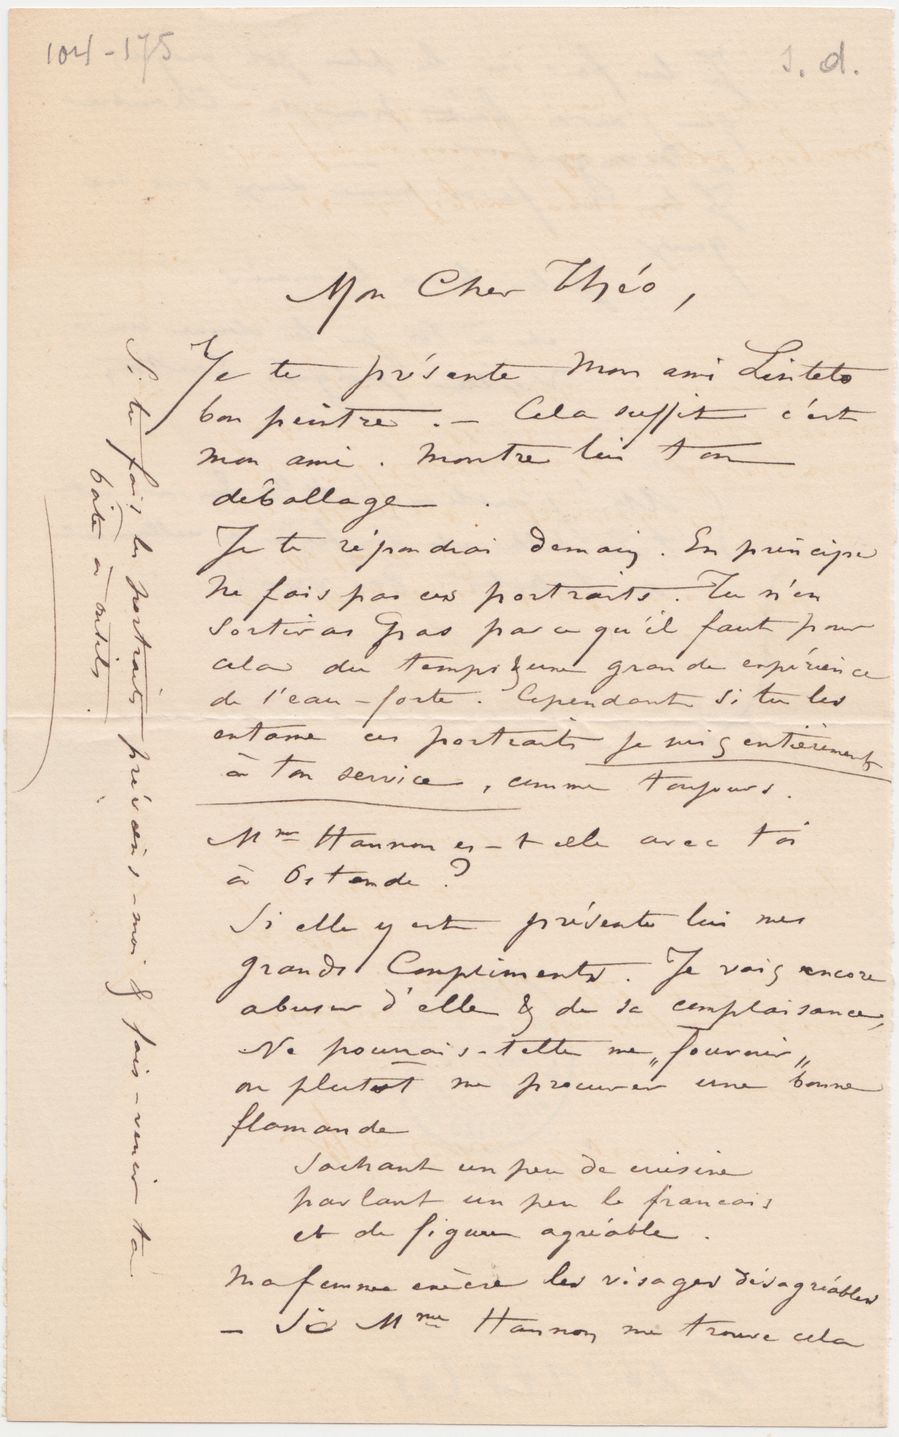 104-175
s. d.
Mon Cher Théo,
Je te présente mon ami Linteto
bon peintre. — Cela suffit c'est
mon ami. Montre lui ton
déballage.
Je te répondrai demain. En principe
ne fais pas ces portraits. Tu n'en
sortiras pas parce qu'il faut pour
cela du temps & une grande expérience
de l'eau-forte. Cependant si tu les
entame ces portraits je suis entièrement
à ton service, comme toujours.
Mme Hannon es-t elle avec toi
à Ostende ?
Si elle y est présente lui mes
grands Compliments. Je vais encore
abuser d'elle & de sa complaisance,
Ne pourrais-t elle me „fournir„
ou plutot me procurer une bonne
flamande
sachant un peu de cuisine
parlant un peu le francais
et de figure agréable.
Ma femme exècre les visages désagréables
— Si Mme Hannon me trouve cela
Si tu fais les portraits préviens-moi & fais-venir ta
boite à outils.